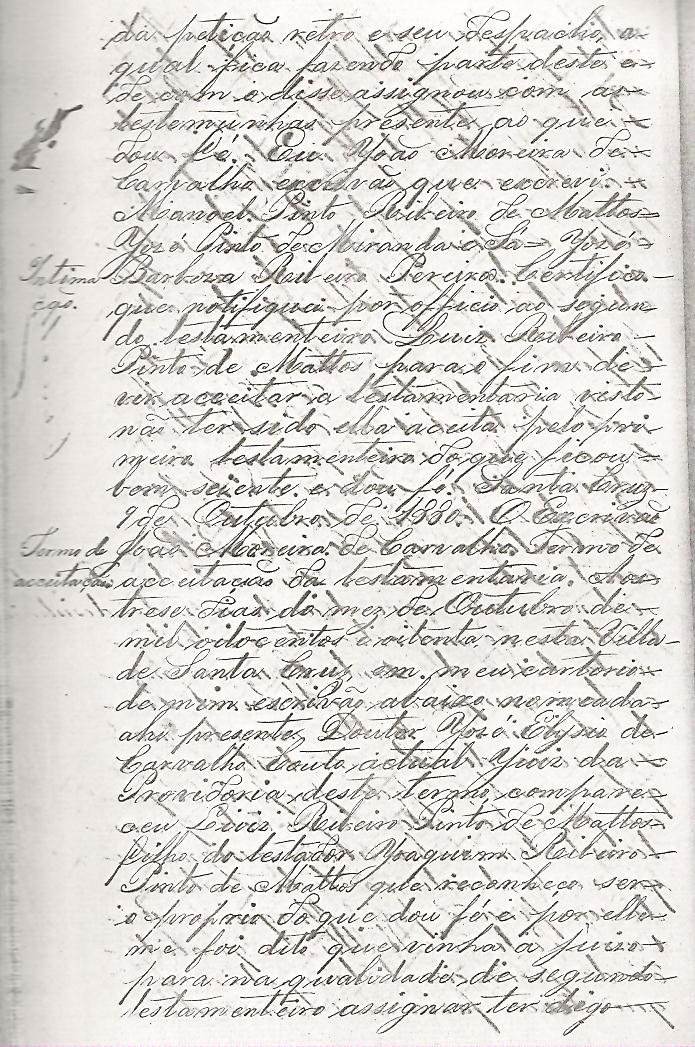 da petição retro e seu despacho, a
qual fica fazendo parte deste e
de com o disse assignou com as
testemunhas presente ao que
dou fé. Eu Yoão Moreira de
Carvalho escrivão que escrevi.
Manoel Pinto Ribeiro de Mattos
Yozé Pinto de Miranda e Sá Yozé
Intima Barboza Ribeiro Pereira. Certifico
ção. que notifiquei por officio ao segun
do testamenteiro Luiz Ribeiro
Pinto de Mattos para o fim de
vir acceitar a testamentaria visto
não ter sido ella aceita pelo pri
meiro testamenteiro do que ficou
bem seiente e dou fé. Santa Cruz
9 de Outubro de 1880. O Escrivão
Termo de Yoão Moreira de Carvalho. Termo de
acceitação acceitação da testamentaria. Aos
trese dias do mez de Outubro de
mil oitocentos e oitenta nesta Villa
de Santa Cruz em meu cartorio
de mim escrivão abaixo nomeado
ahi presente Doutor Yozé Elysio de
Carvalho Couto actual Yuiz da
Provedoria deste termo compare
ceu Luiz Ribeiro Pinto de Mattos
filho do testador Yoaquim Ribeiro
Pinto de Mattos que reconheço ser
o proprio do que dou fé e por elle
me foi dito que vinha a juizo
para na qualidade de segundo
testamenteiro assignar ter digo